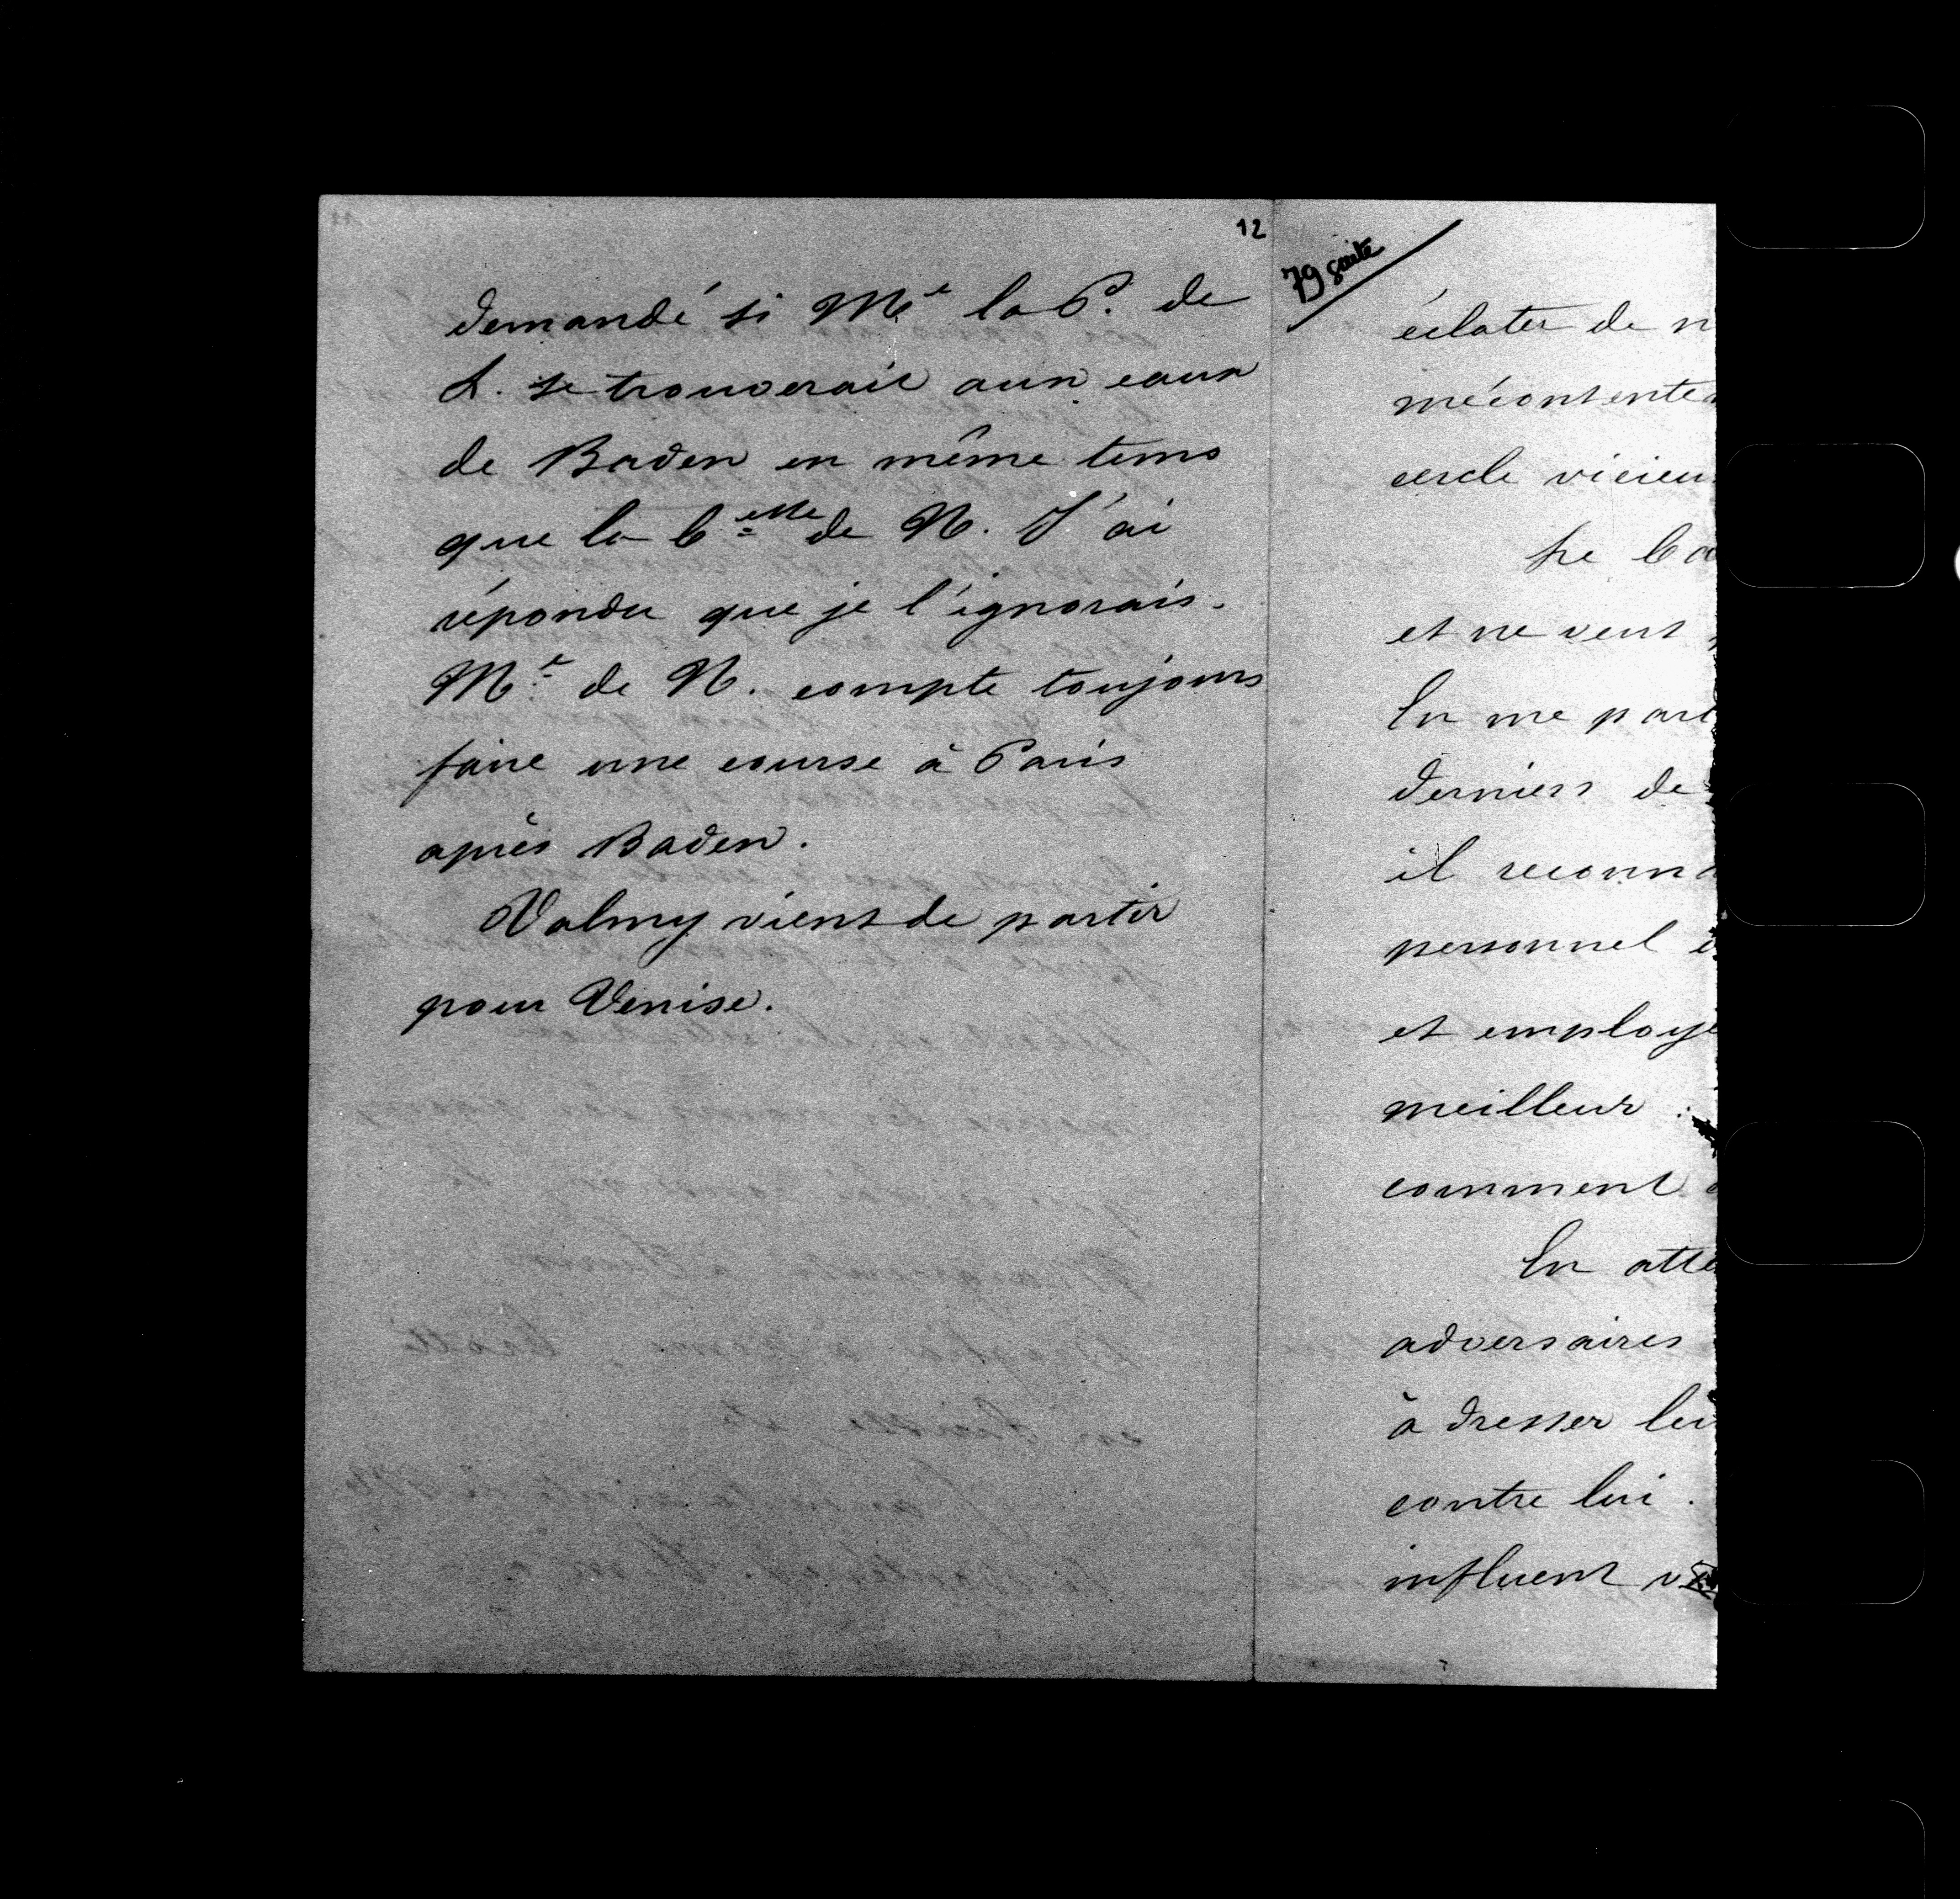 12
demandé si Me la P. de
L. se trouverait aux eaux
de Baden en même tems
que la Ctesse de N. J'ai
répondu que je l'ignorais.
Me de N. compte toujours
faire une course à Paris
après Baden.
Valmy vient de partir
pour Venise.
79 suite
éclater de n
mécontente
cercle vicieu
Le Co
et ne veut
En me parl
derniers de
il reconna
personnel e
et employe
meilleur.
comment
En atte
adversaires
à dresser leu
contre lui.
influent